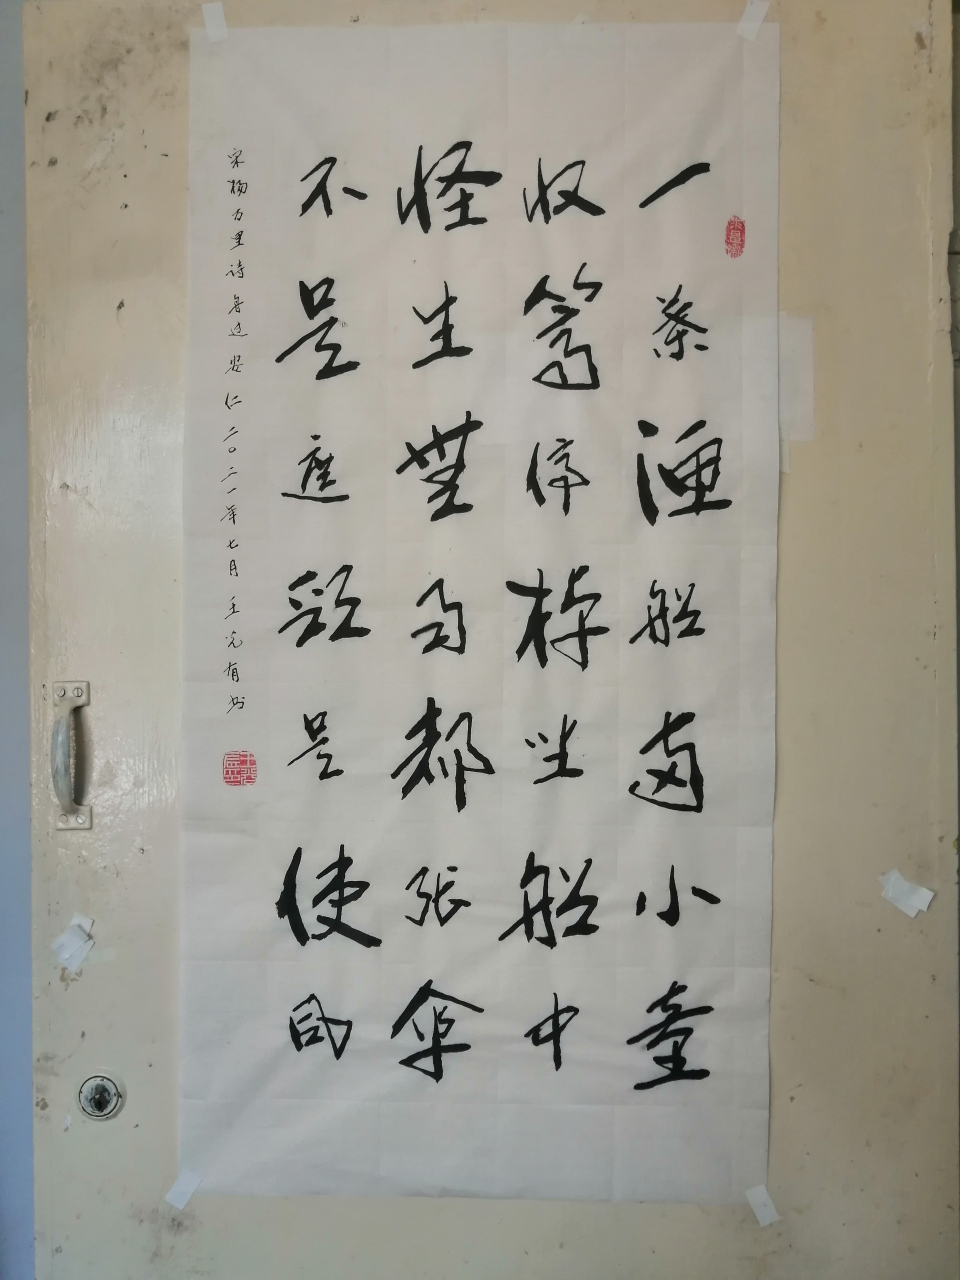 一叶渔船两小童
收篙停棹坐船中
怪生無雨都张伞
不是遮头是使风
宋杨万里诗舟过安仁二〇二一年七月王光有书